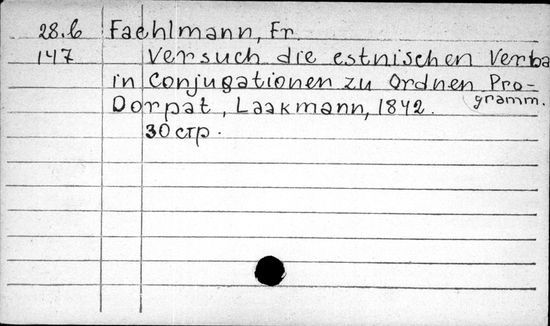 28.b Faehlmann, Fr.
147 Versuch die estnischen Verba
in Conjugationen zu Ordnen Pro-
gramm.
Dorpat, Laakmann, 1842.
30 стр.